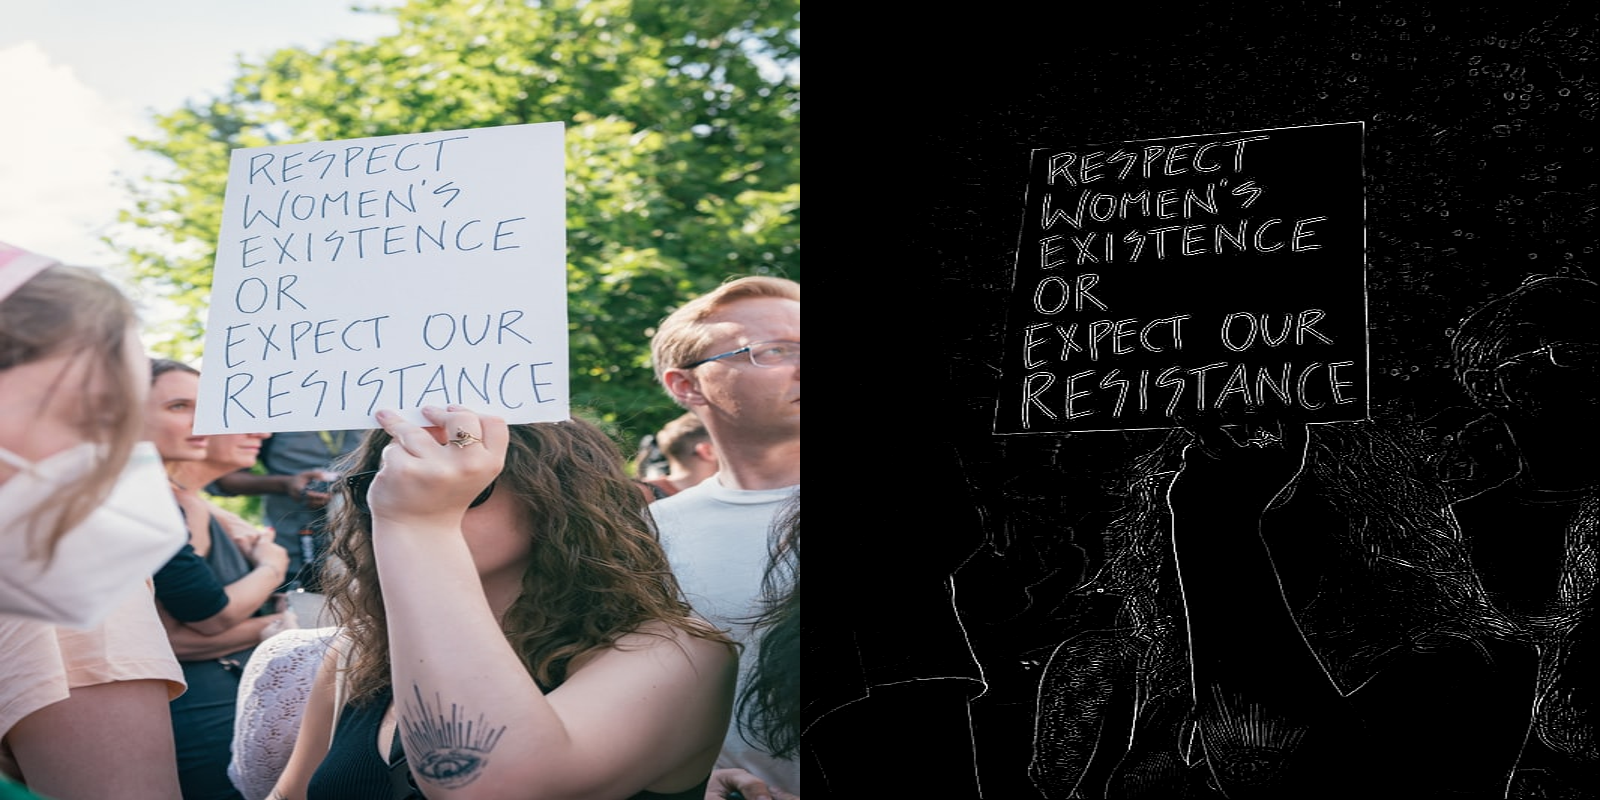 RESPECT
WOMEN'S
EXISTENCE
OR
EXPECT OUR
RESISTANCE
RESPECT
WOMEN'S
EXISTENCE
OR
EXPECT OUR
RESISTANCE